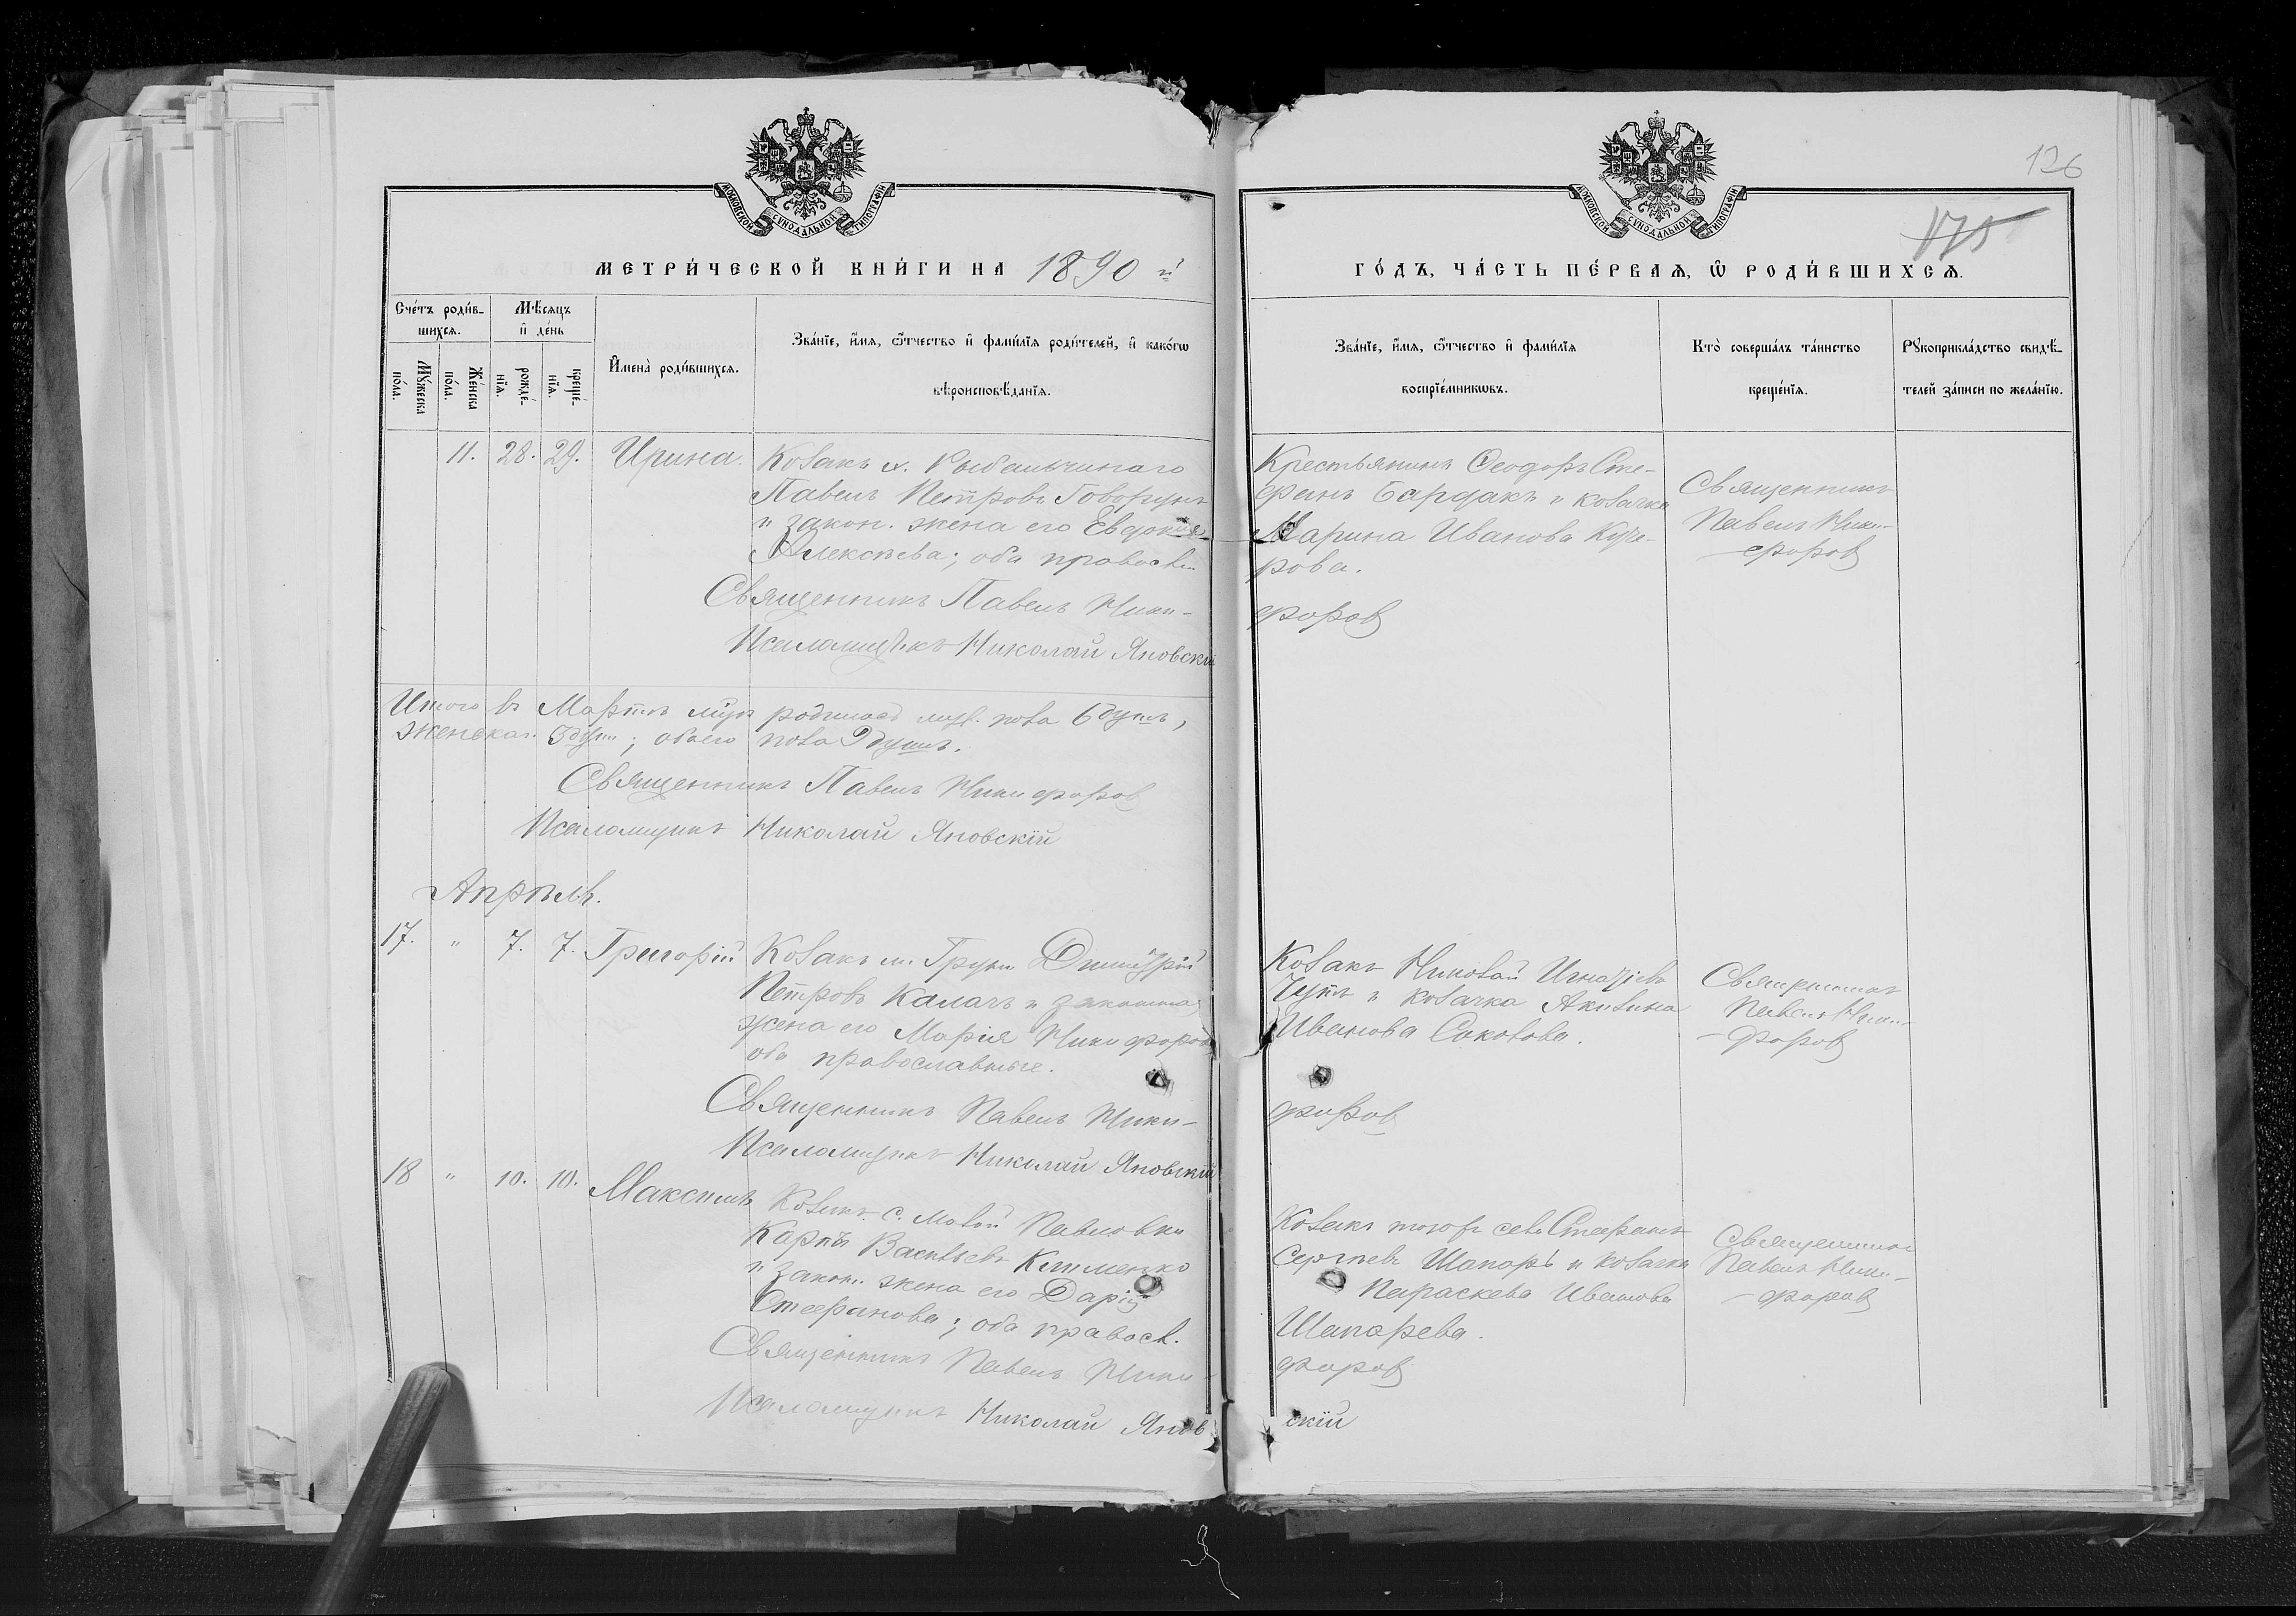 126
175
МОСКОВСКОЙ СУНОДАЛЬНОЙ ТИПОГРАФІИ
МОСКОВСКОЙ СУНОДАЛЬНОЙ ТИПОГРАФІИ
МЕТРИ́ЧЕСКОЙ КНИ́ГИ НА 1890 й
ГО́ДЪ, ЧА́СТЬ ПЕ́РВАѦ, Ѡ РОДИ́ВШИХСѦ.
Сче́тъ роди́в-
шихсѧ.
Мꙋ́жеска
по́ла.
Же́нска
по́ла.
Мѣ́сѧцъ
и҆ де́нь
рожде́-
нїѧ.
креще́-
нїѧ.
И҆мена̀ роди́вшихсѧ.
Зва́нїе, и҆́мѧ, ѻ҆́тчество и҆ фами́лїѧ роди́телей, и҆ како́гѡ
вѣроисповѣ́данїѧ.
Зва́нїе, и҆́мѧ, ѻ҆́тчество и҆ фами́лїѧ
воспрїе́мникѡвъ.
Кто̀ соверша́лъ та́инство
креще́нїѧ.
Рꙋкоприкла́дство свидѣ́-
телей за́писи по жела́нїю.
11. 28. 29. Ирина. Козакъ х. Рыбальчинаго
Павелъ Петровъ Говорунъ
и закон. жена его Евдокія
Алексѣева; оба правосл.
Священникъ Павелъ Ники-
Псаломщикъ Николай Яновскій
Крестьянинъ Ѳеодоръ Сте-
фанъ Бардакъ и козачка
Марина Иванова Куче-
рова.
форовъ
Священникъ
Павелъ Ники-
форовъ
Итого въ Мартѣ родилось муж. пола 6 душъ,
женскаго 3 души; обоего пола 9 душъ.
Священникъ Павелъ Никифоровъ
Псаломщикъ Николай Яновскій
Апрѣль.
17. " 7. 7. Григорій Козакъ м. Груни Димитрій
Петровъ Калачъ и законная
жена его Марія Никифорова
оба православные.
Священникъ Павелъ Ники-
Псаломщикъ Николай Яновскій
Козакъ Николай Игнатіевъ
и козачка Акилина
Иванова Соколова.
форовъ
Священникъ
Павелъ Ники-
форовъ
18 " 10. 10. Максимъ Козакъ с. Малой Павловки
Карпъ Васильевъ Клименко
и закон. жена его Дарія
Стефанова; оба правосл.
Священникъ Павелъ Ники-
Псаломщикъ Николай Янов
Козакъ того же села Стефанъ
Сергѣевъ Шапаръ и козачка
Параскева Иванова
Шапарева.
форовъ
скій
Священникъ
Павелъ Ники-
форовъ